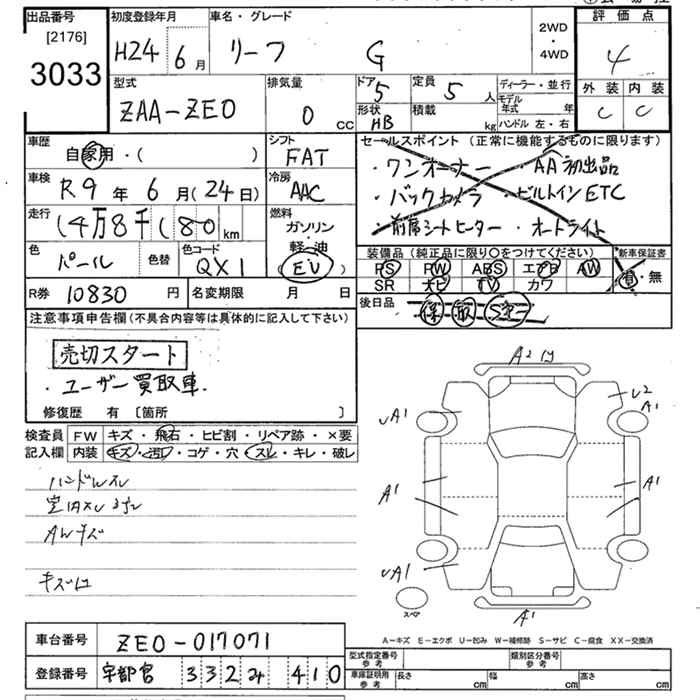 出品番号
[2176]
3033
初度登録年月
H24 6月
車名・グレード
リーフ G
2WD
・
4WD
評価点
4
外装 内装
C C
型式
ZAA-ZE0
排気量
0 cc
ドア
5
形状
HB
定員
5 人
積載
kg
ディーラー・並行
モデル年式 年
ハンドル 左・右
車歴
自家用・( )
シフト
FAT
車検
R9年6月(24日)
冷房
AAC
走行
(4万8千(80 km
燃料
ガソリン
軽・油
(EV)
色
パール
色替
色コード
QX1
R券 10830 円
名変期限 月 日
セールスポイント(正常に機能するものに限ります)
・ワンオーナー ・AA初出品
・バックカメラ ・ビルトインETC
・前席シートヒーター ・オートライト
装備品(純正品に限り○をつけてください)
新車保証書
PS PW ABS エアB AW
SR ナビ TV カワ
有・無
後日品
保 取 S
注意事項申告欄(不具合内容等は具体的に記入して下さい)
売切スタート
・ユーザー買取車.
修復歴 有 〔箇所 〕
検査員
記入欄
FW キズ・飛石・ヒビ割・リペア跡・×要
内装 キズ・汚れ・コゲ・穴・スレ・キレ・破レ
ハンドルスレ
AWキズ
A2
A1
U2
A1
A1
A1
A1
A1
スペア
A-キズ E-エクボ U-凹み W-補修跡 S-サビ C-腐食 XX-交換済
車台番号 ZE0-017071
登録番号 宇都宮 332 み 410
型式指定番号
参考
類別区分番号
参考
車庫証明用
参考
長さ cm 幅 cm 高さ cm